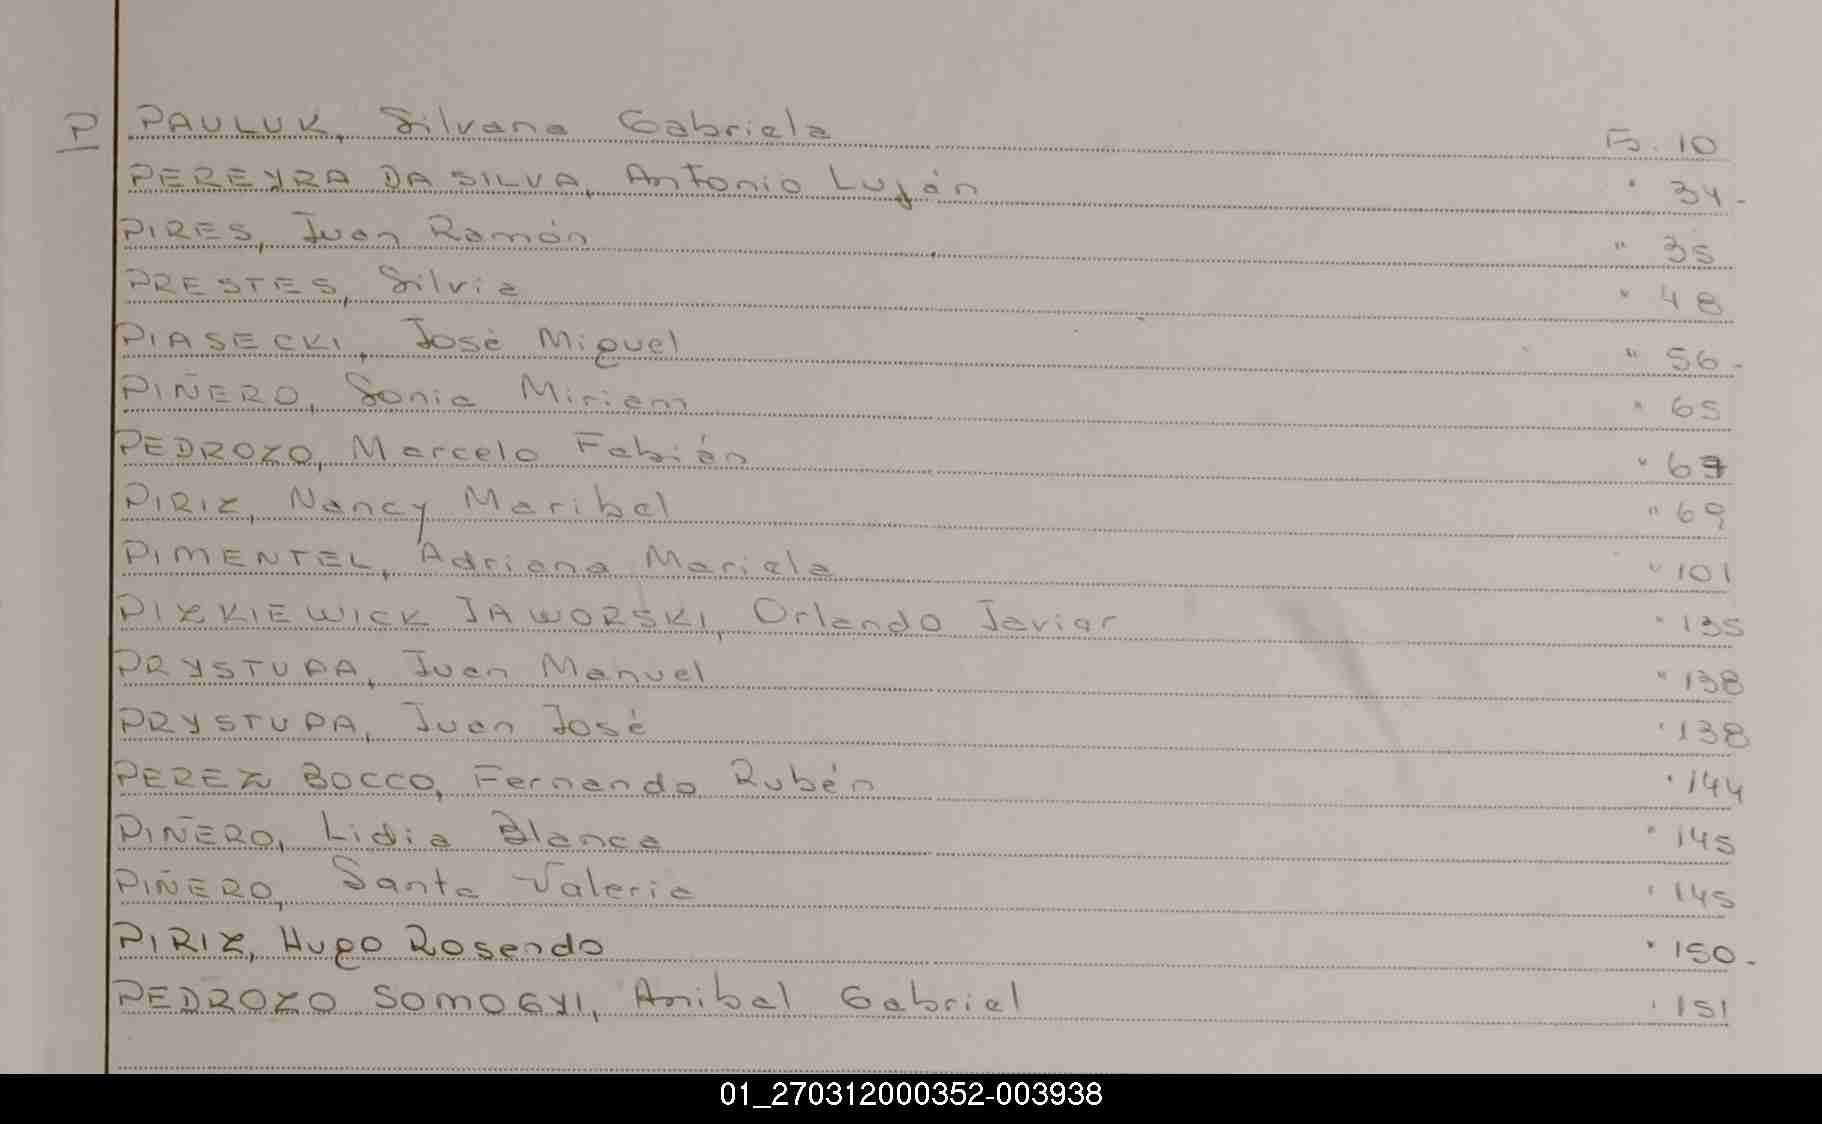 P PAULUK, Silvana Gabriela Fo. 10
PEREYRA DA SILVA, Antonio Luján " 34-
PIRES, Juan Ramón " 35
PRESTES, Silvia " 48
PIASECKI, José Miguel " 56-
PIÑERO, Sonia Miriam " 65
PEDROZO, Marcelo Fabián " 67
PIRIZ, Nancy Maribel " 69
PIMENTEL, Adriana Mariela " 101
PIZKIEWICK JAWORSKI, Orlando Javier " 135
PRYSTUPA, Juan Manuel " 138
PRYSTUPA, Juan José " 138
PEREZ BOCCO, Fernando Rubén " 144
PIÑERO, Lidia Blanca " 145
PIÑERO, Santa Valeria " 145
PIRIZ, Hugo Rosendo " 150-
PEDROZO SOMOGYI, Anibal Gabriel " 151
01_270312000352-003938